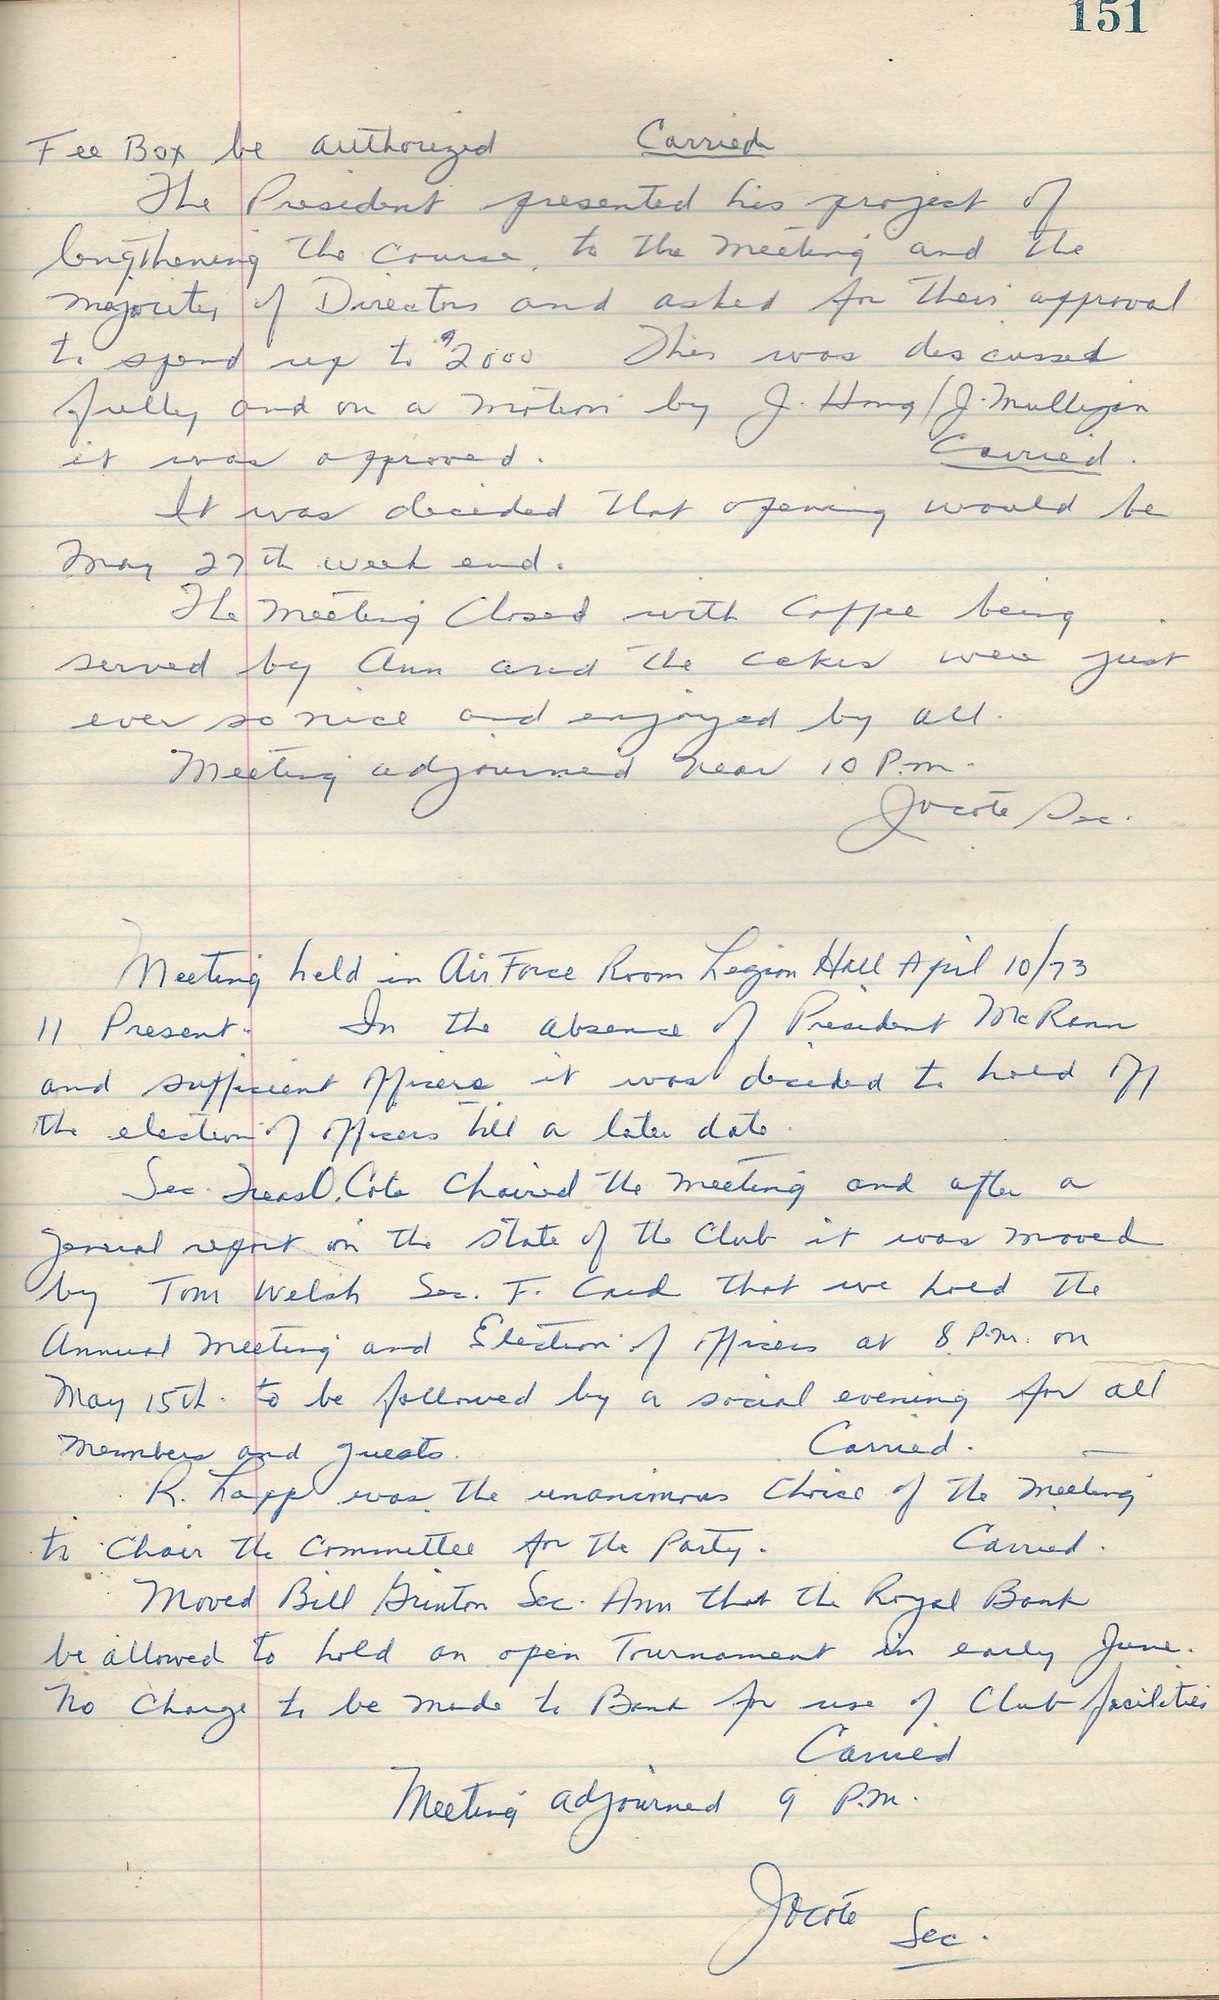 151
Fee Box be authorized Carried
The President presented his project of
lengthening the course, to the meeting and the
majority of Directors and asked for their approval
to spend up to $2000 This was discussed
fully and on a motion by J. Hong / J. Mulligan
it was approved. Carried.
It was decided that opening would be
May 27th week end.
The Meeting Closed with Coffee being
served by Ann and the cakes were just
ever so nice and enjoyed by all.
Meeting adjourned near 10 P.m.
Jocote Sec.
Meeting held in Air Force Room Legion Hall April 10/73
11 Present. In the absence of President McRann
and sufficient officers it was decided to hold off
the election of officers till a later date.
Sec. Treas O. Cote Chaired the meeting and after a
general report on the state of the Club it was moved
by Tom Welsh Sec. F. that we hold the
Annual Meeting and Election of officers at 8 P.M. on
May 15th. to be followed by a social evening for all
members and guests. Carried.
R. Lapp was the unanimous choice of the meeting
to Chair the Committee for the Party. Carried.
Moved Bill Grinton Sec. Ann that the Royal Bank
be allowed to hold an open Tournament in early June.
No Charge to be made to Bank for use of Club facilities
Carried
Meeting adjourned 9 P.m.
Jocote Sec.